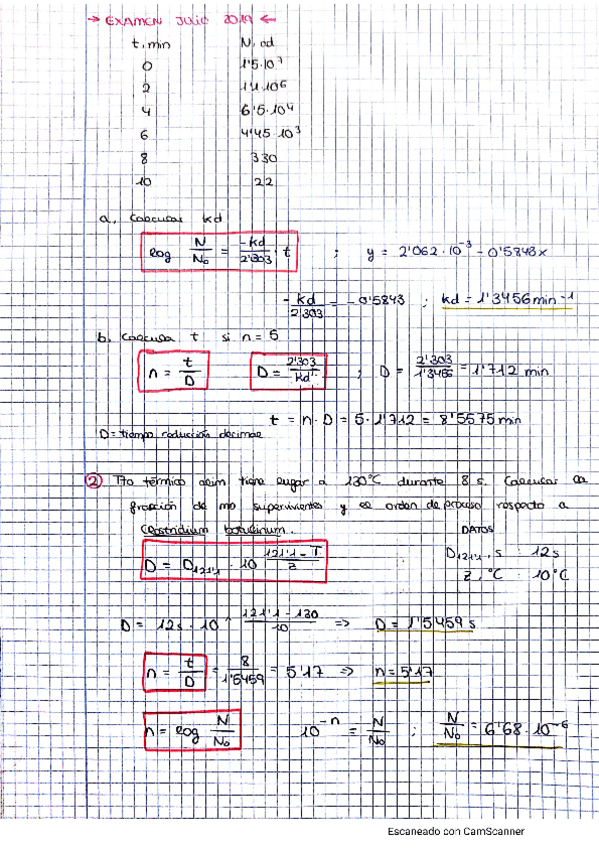 → EXAMEN JULIO 2019 ←
t, min N, cd
0 1'5·10⁷
2 1'1·10⁶
4 6'5·10⁴
6 4'45·10³
8 330
10 22
a, Calcular kd
log N/N₀ = -kd/2'303 · t ; y = 2'062·10⁻³ - 0'5843x
-kd/2'303 = -0'5843 ; kd = 1'3456 min⁻¹
b, Calcula t si n = 5
n = t/D D = 2'303/kd ; D = 2'303/1'3456 = 1'712 min
t = n · D = 5 · 1'712 = 8'5575 min
D = tiempo reducción decimal
② Tto térmico alim tiene lugar a 130°C durante 8 s. Calcular la
fracción de mo supervivientes y el orden de proceso respecto a
Clostridium botulinum.
DATOS
D₁₂₁'₁, s : 12s
z, °C : 10°C
D = D₁₂₁'₁ · 10^(121'1 - T)/z
D = 12s · 10^(121'1 - 130)/10 ⇒ D = 1'5459 s
n = t/D = 8/1'5459 = 5'17 ⇒ n = 5'17
n = log N/N₀ 10⁻ⁿ = N/N₀ ; N/N₀ = 6'68·10⁻⁶
Escaneado con CamScanner